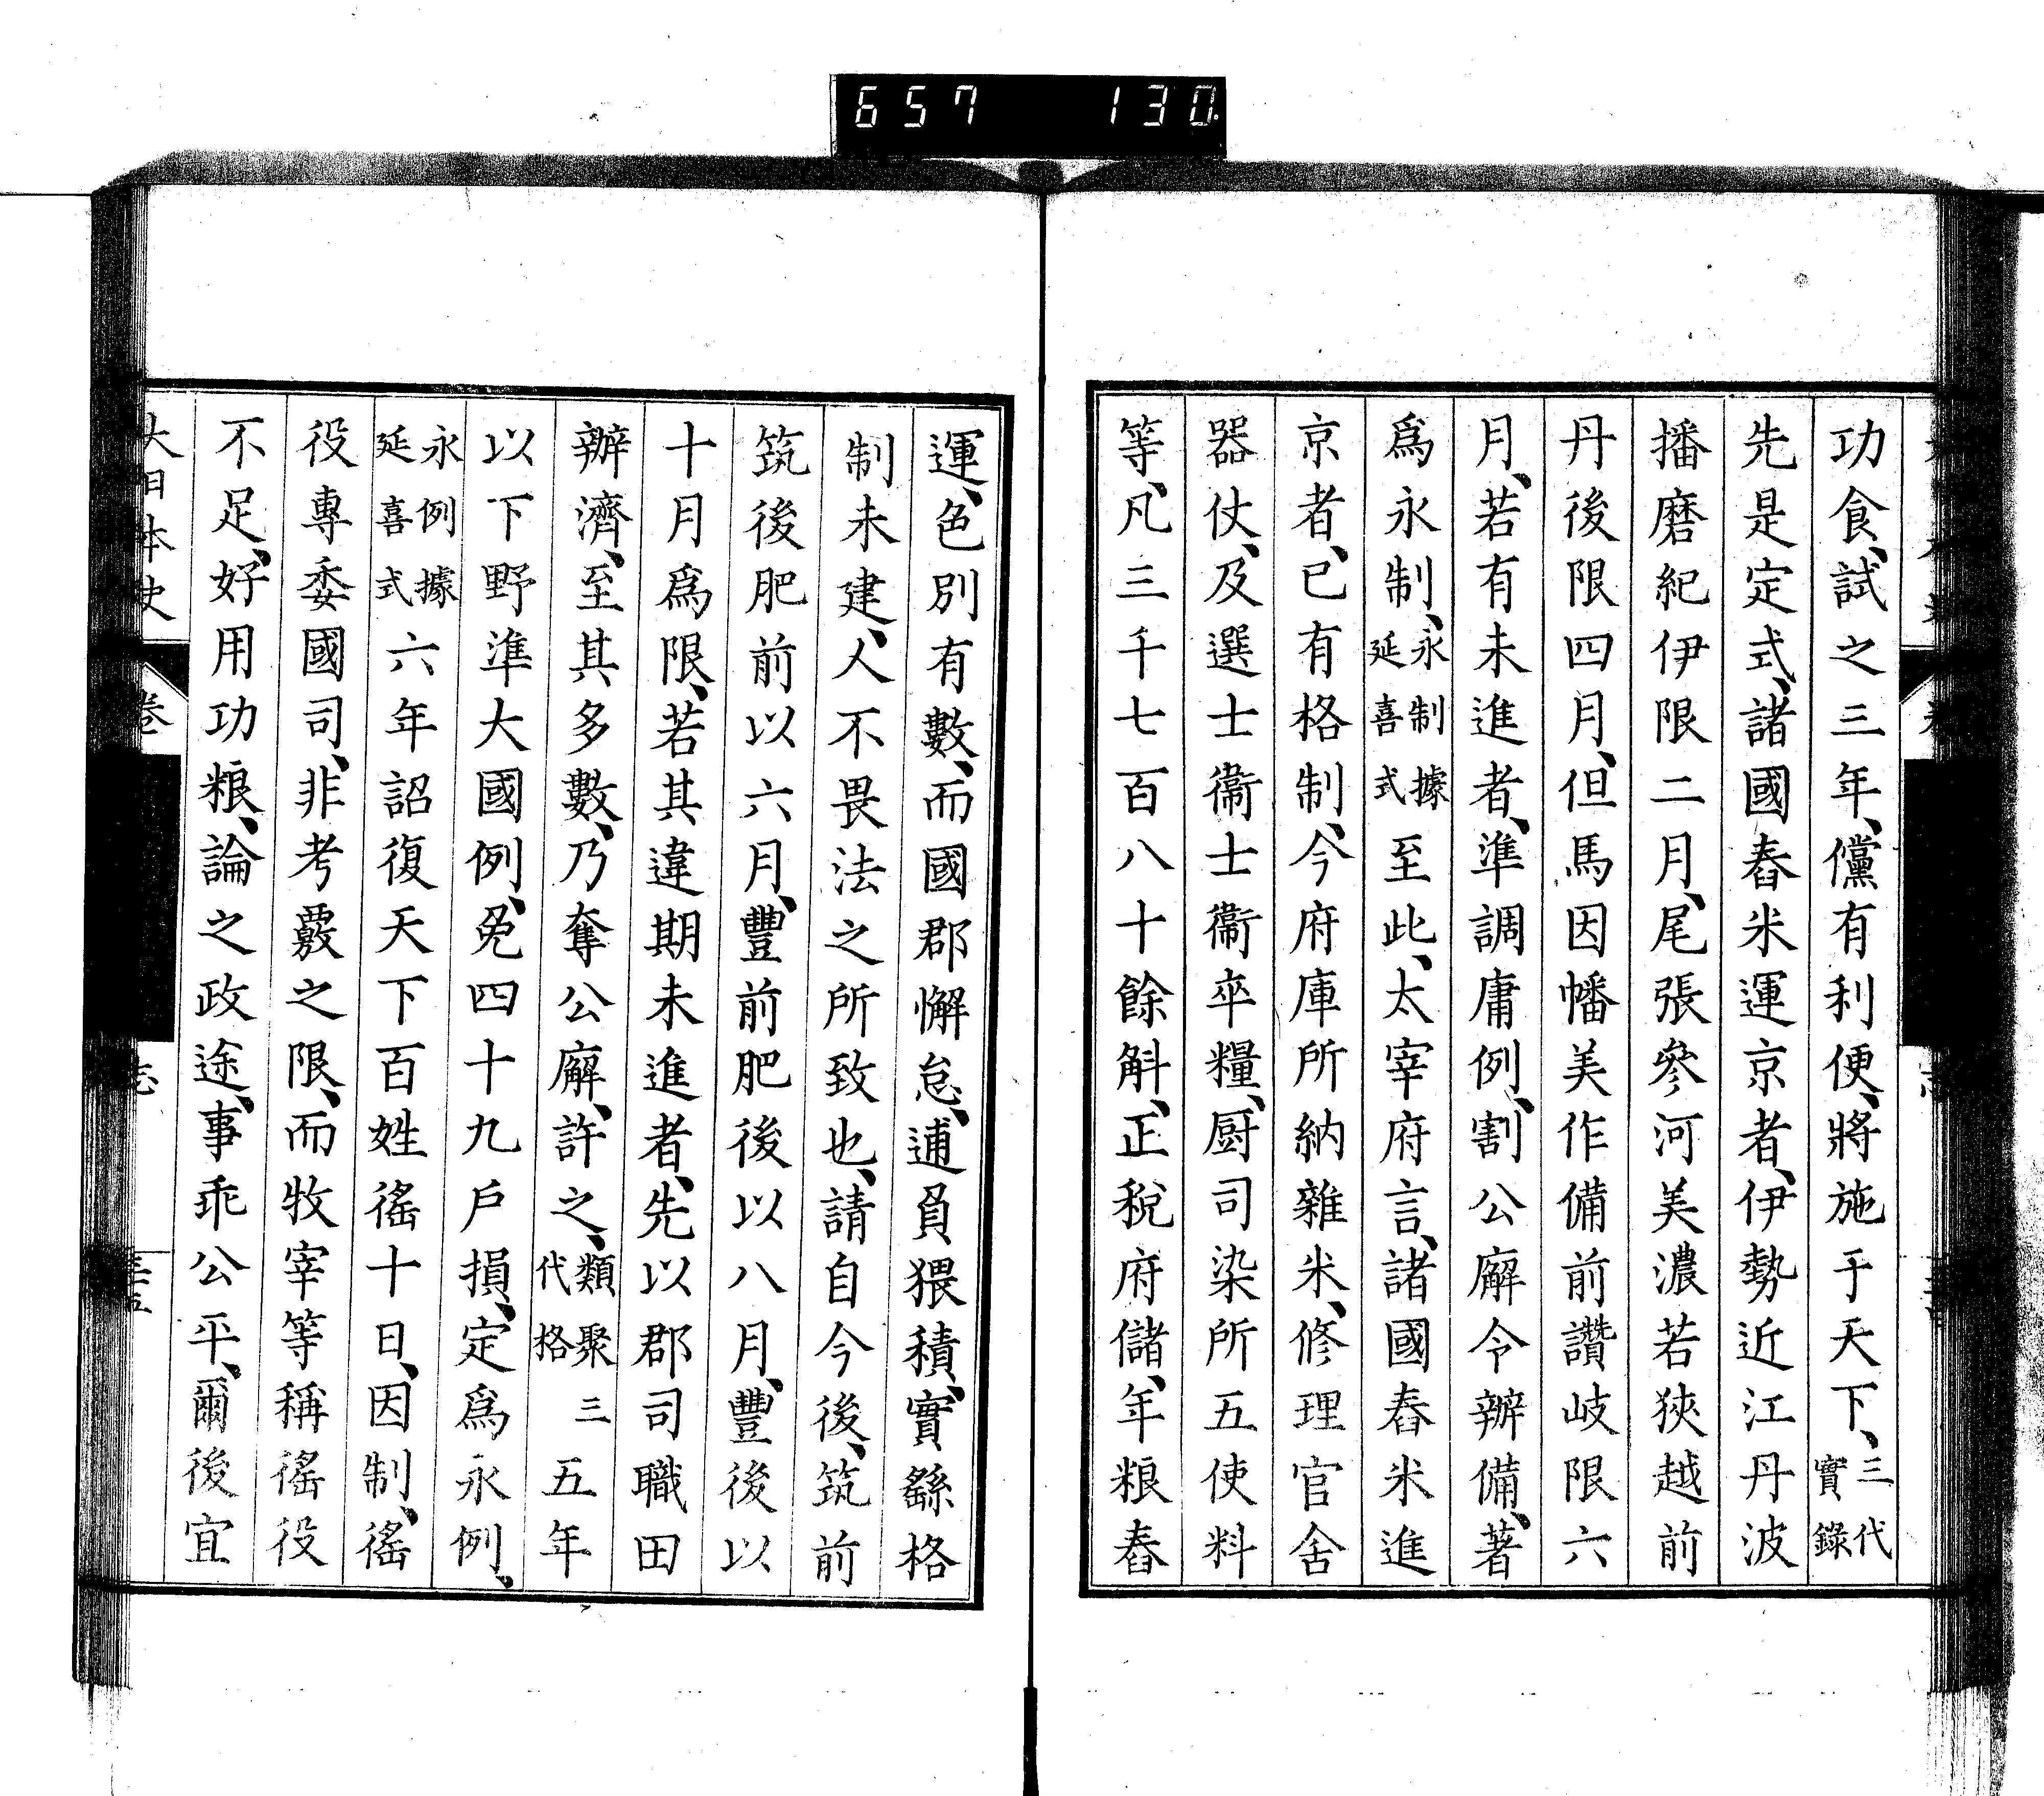 657 130
功食、試之三年、儻有利便、將施于天下、三代實錄
先是定式、諸國舂米運京者、伊勢近江丹波
播磨紀伊限二月、尾張參河美濃若狹越前
丹後限四月、但馬因幡美作備前讚岐限六
月、若有未進者、準調庸例、割公廨令辨備、著
爲永制、永制據延喜式至此、太宰府言、諸國舂米進
京者、已有格制、今府庫所納雜米、修理官舍
器仗、及選士衞士衞卒糧、厨司染所五使料
等、凡三千七百八十餘斛、正稅府儲、年粮舂
運、色別有數、而國郡懈怠、逋負猥積、實繇格
制未建、人不畏法之所致也、請自今後、筑前
筑後肥前以六月、豐前肥後以八月、豐後以
十月爲限、若其違期未進者、先以郡司職田
辨濟、至其多數、乃奪公廨、許之、類聚三代格五年
以下野準大國例、免四十九戶損、定爲永例、
永例據延喜式六年詔復天下百姓徭十日、因制、徭
役專委國司、非考覈之限、而牧宰等稱徭役
不足、好用功粮、論之政途、事乖公平、爾後宜
大日本史 卷 志